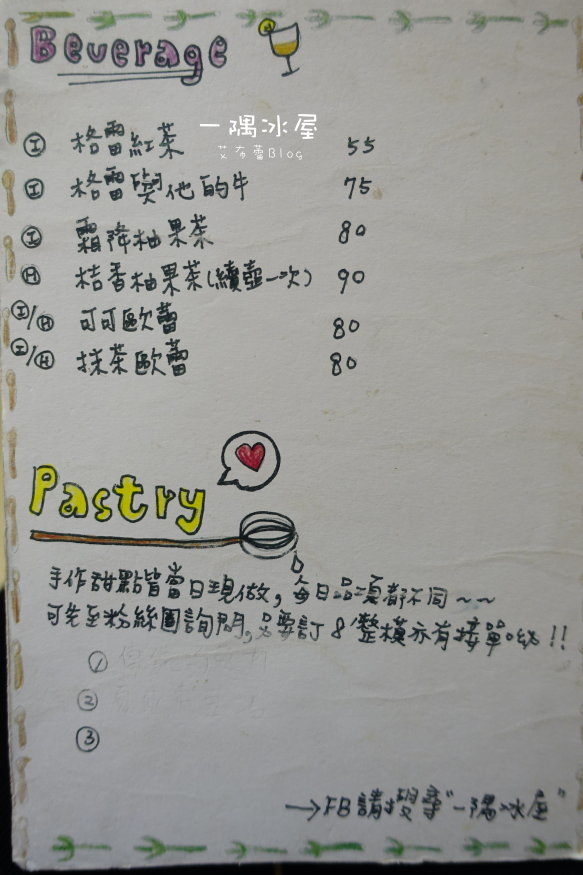 Beverage
一隅冰屋
艾布蕾Blog
Ⓘ 格雷紅茶 55
Ⓘ 格雷與他的牛 75
Ⓘ 霜降柚果茶 80
Ⓗ 桔香柚果茶(續壺一次) 90
Ⓘ/Ⓗ 可可歐蕾 80
Ⓘ/Ⓗ 抹茶歐蕾 80
Pastry
手作甜點皆當日現做,每日品項都不同~~
可先至粉絲團詢問,只要訂8"整模亦有接單呦!!
①
②
③
→FB請搜尋"一隅冰屋"